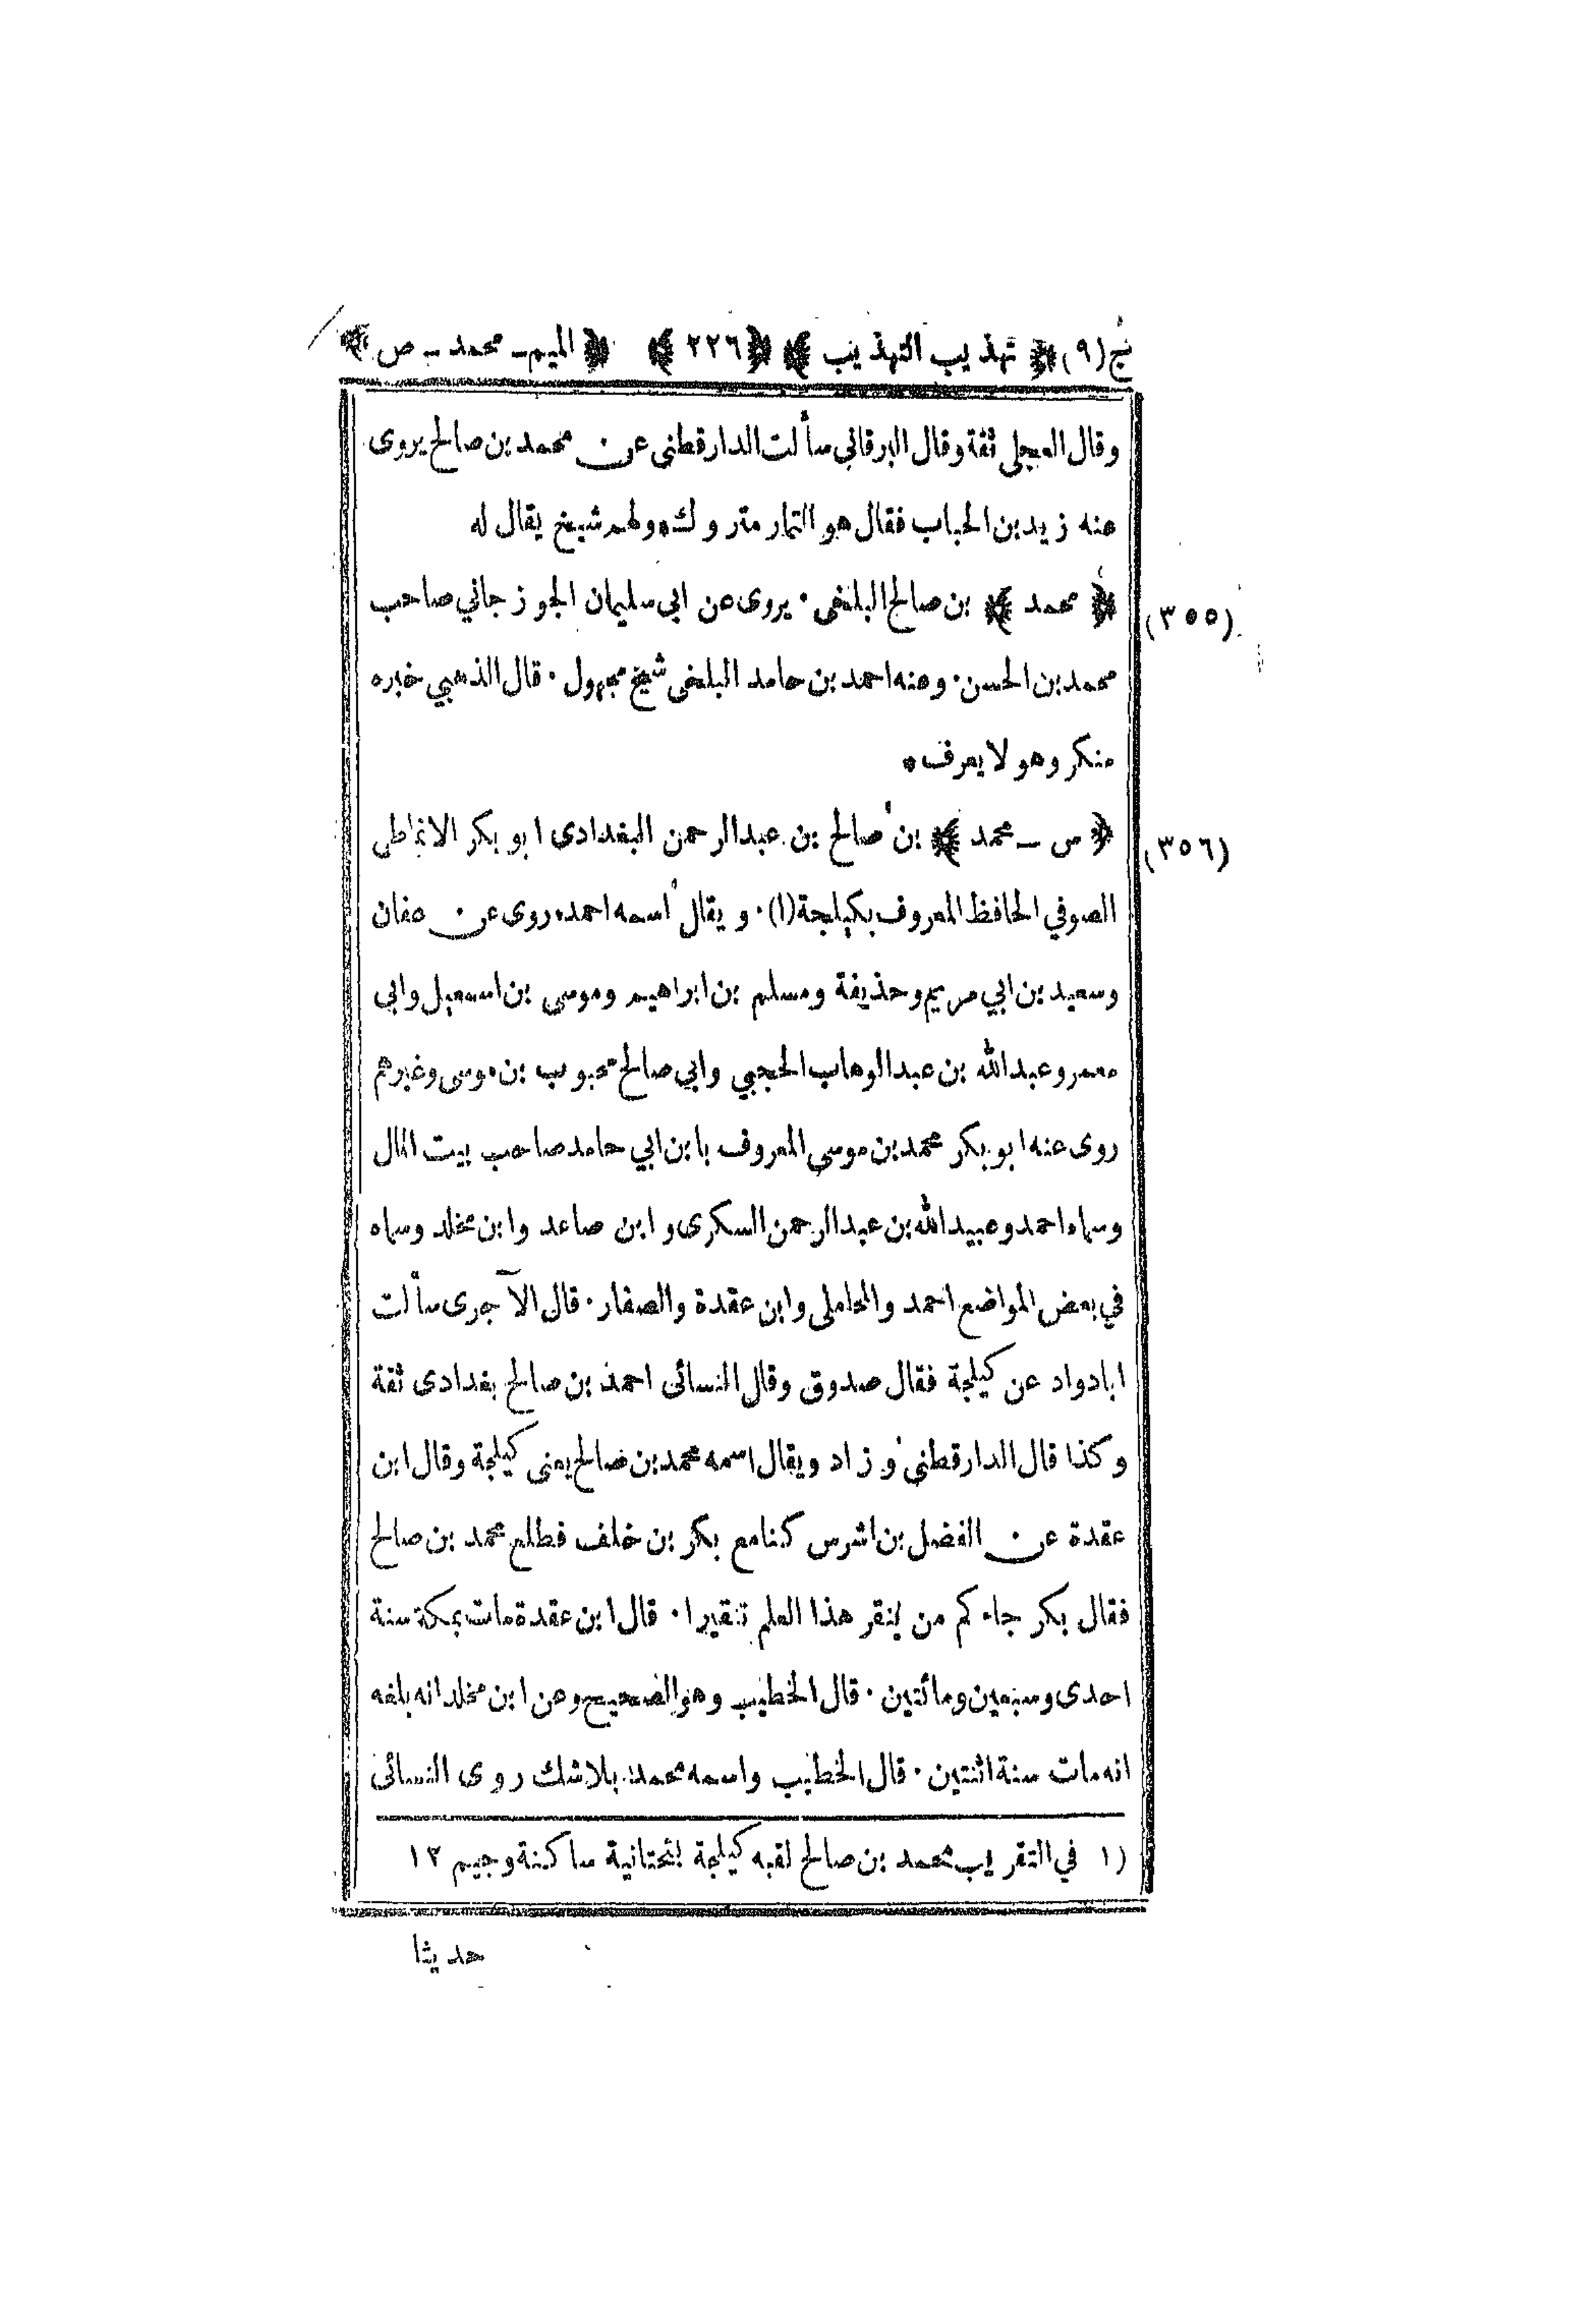 ج(٩) ﴿ تهذيب التهذيب ﴾ ﴿ ٢٢٦ ﴾ ﴿ الميم ـ محمد ـ ص ﴾
وقال العجلي ثقة وقال البرقاني سألت الدارقطنى عن محمد بن صالح يروى
عنه زيد بن الحباب فقال هو التمار متروك * ولهم شيخ يقال له
(٣٥٥) ﴿ محمد ﴾ بن صالح البلخى ٠ يروى عن ابى سليمان الجوزجاني صاحب
محمد بن الحسن ٠ وعنه احمد بن حامد البلخى شيخ مجهول ٠ قال الذهبي خبره
منكر وهو لا يعرف *
(٣٥٦) ﴿ س ـ محمد ﴾ بن صالح بن عبد الرحمن البغدادى ابو بكر الانماطى
الصوفي الحافظ المعروف بكيلجة (١) ٠ ويقال اسمه احمد * روى عن عفان
وسعيد بن ابي مريم وحذيفة ومسلم بن ابراهيم وموسى بن اسمعيل وابى
معمر وعبدالله بن عبدالوهاب الحجبي وابي صالح محبوب بن موسى وغيرهم
روى عنه ابو بكر محمد بن موسى المعروف بابن ابي حامد صاحب بيت المال
وسماه احمد وعبيدالله بن عبدالرحمن السكرى وابن صاعد وابن مخلد وسماه
في بعض المواضع احمد والمحاملى وابن عقدة والصفار ٠ قال الآجرى سألت
ابادواد عن كيلجة فقال صدوق وقال النسائى احمد بن صالح بغدادى ثقة
وكذا قال الدارقطنى وزاد ويقال اسمه محمد بن صالح يعنى كيلجة وقال ابن
عقدة عن الفضل بن اشرس كنا مع بكر بن خلف فطلع محمد بن صالح
فقال بكر جاءكم من ينقر هذا العلم تنقيرا ٠ قال ابن عقدة مات بمكة سنة
احدى وسبعين ومائتين ٠ قال الخطيب وهو الصحيح وعن ابن مخلد انه بلغه
انه مات سنة اثنتين ٠ قال الخطيب واسمه محمد بلاشك روى النسائى
(١ في التقريب محمد بن صالح لقبه كيلجة بتحتانية ساكنة وجيم ١٢
حديثا